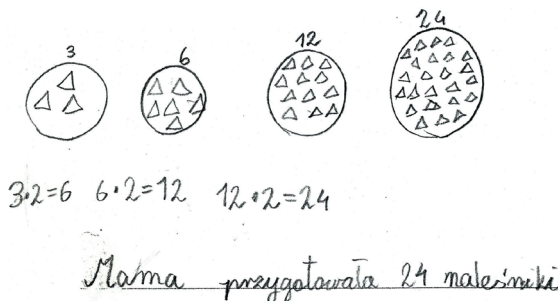 3 6 12 24
3·2=6 6·2=12 12·2=24
Mama przygotowała 24 naleśniki